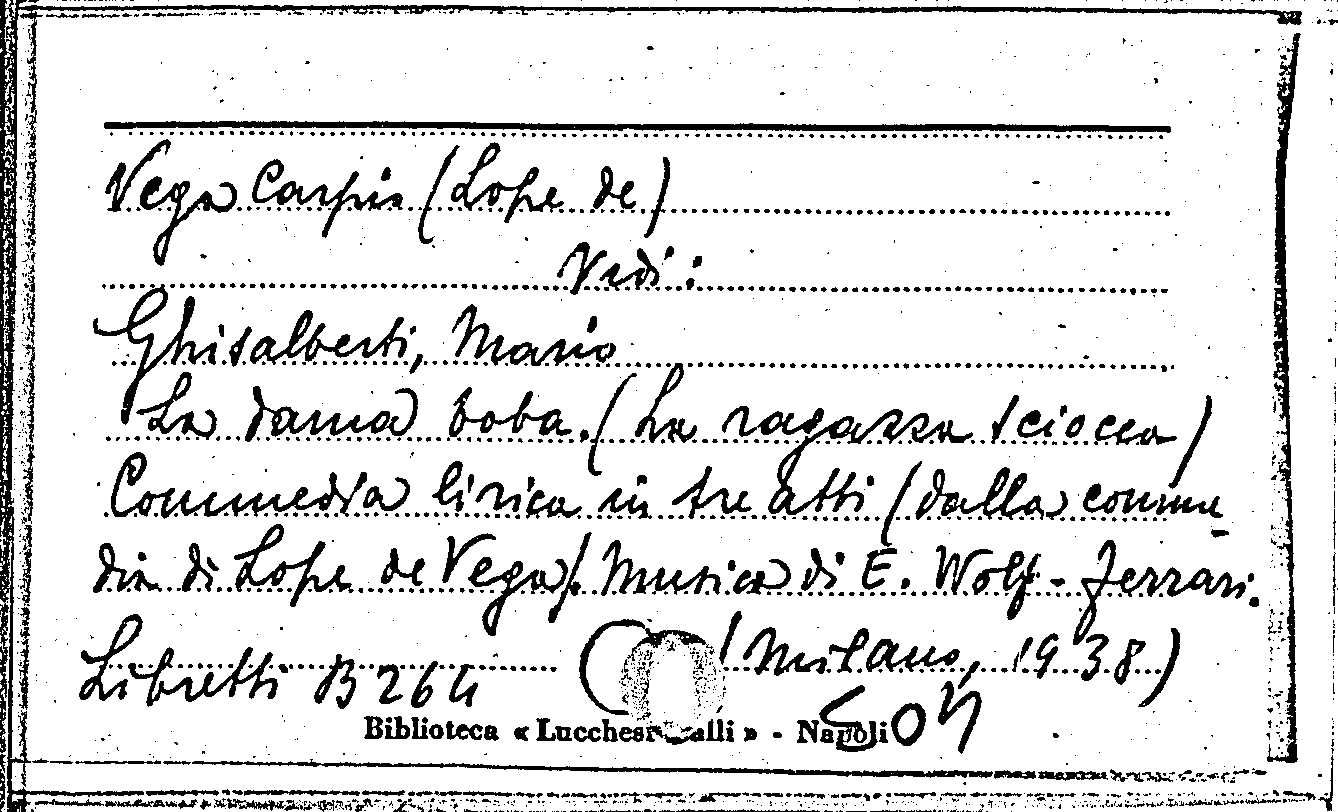 Vega Carpio (Lope de)
Vedi:
Ghisalberti, Mario
La dama boba. (La ragazza sciocca)
Commedia lirica in tre atti (dalla comme-
dia di Lope de Vega). Musica di E. Wolf-Ferrari.
(Milano, 1938)
Libretti B 264
Biblioteca « Lucchesi-Palli » - Napoli